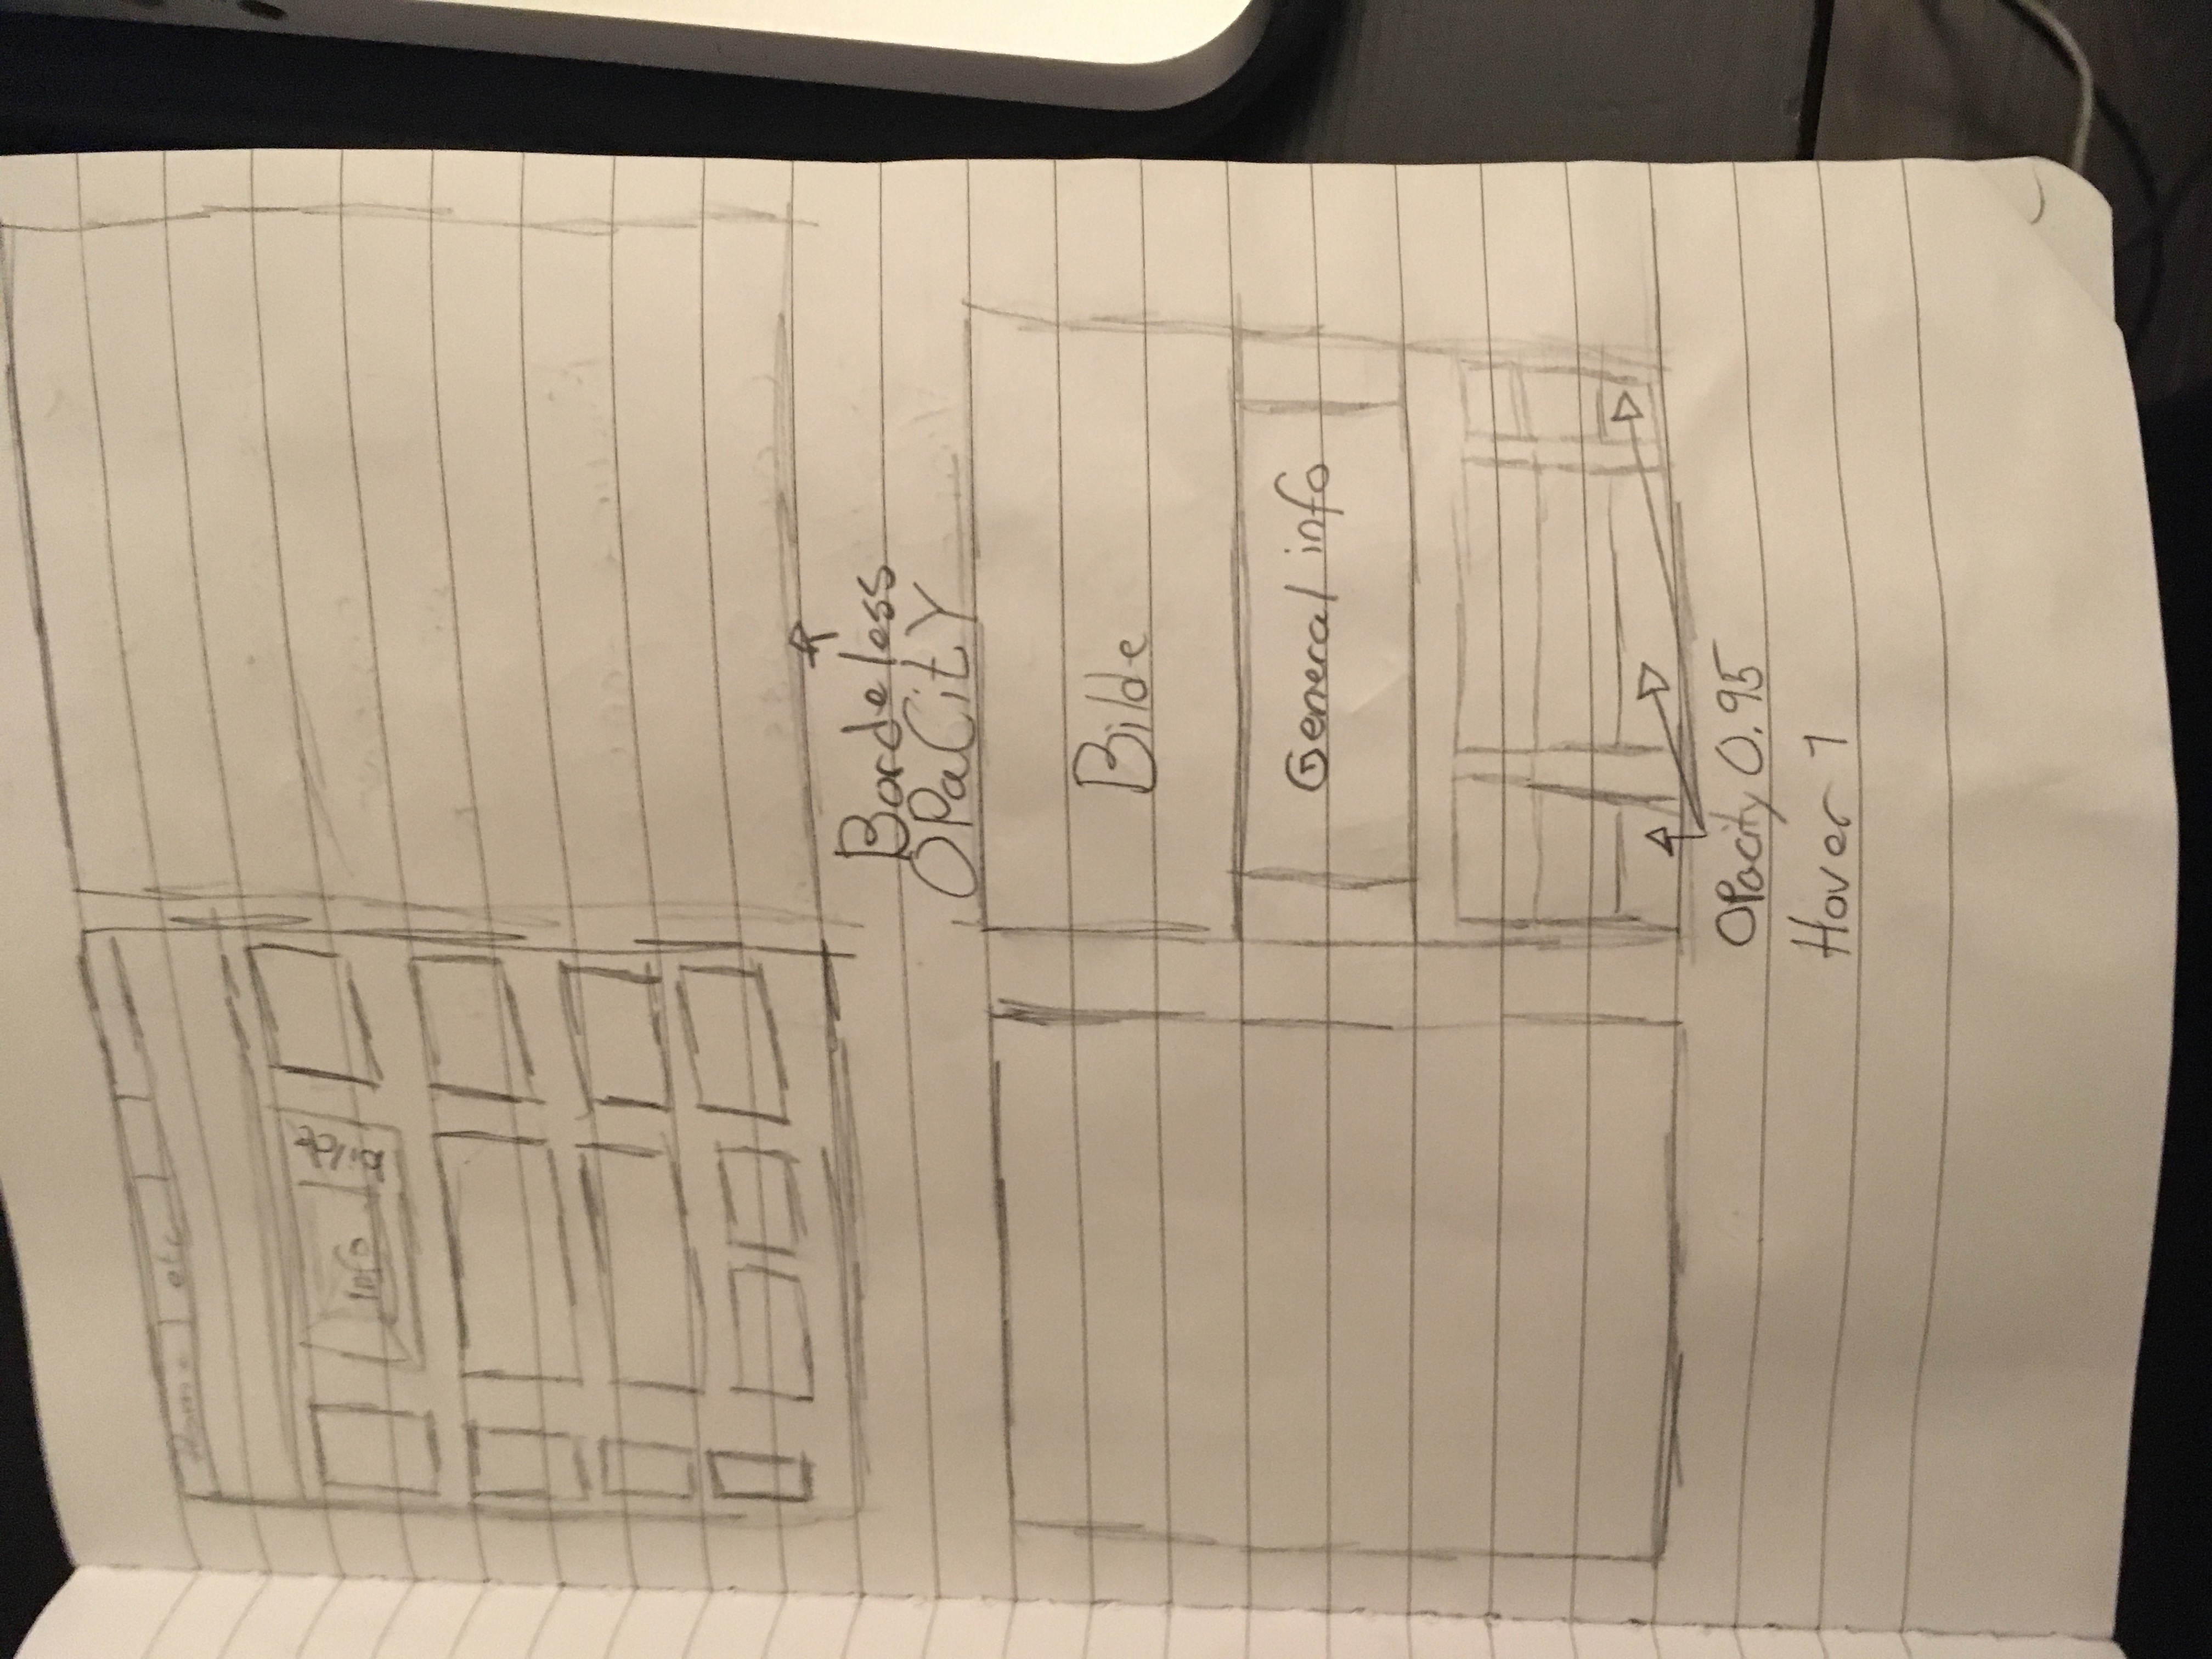 Home etc
Info bilde
Bordeless
OPaCitY
Bilde
General info
OPacity 0.95
Hover 1